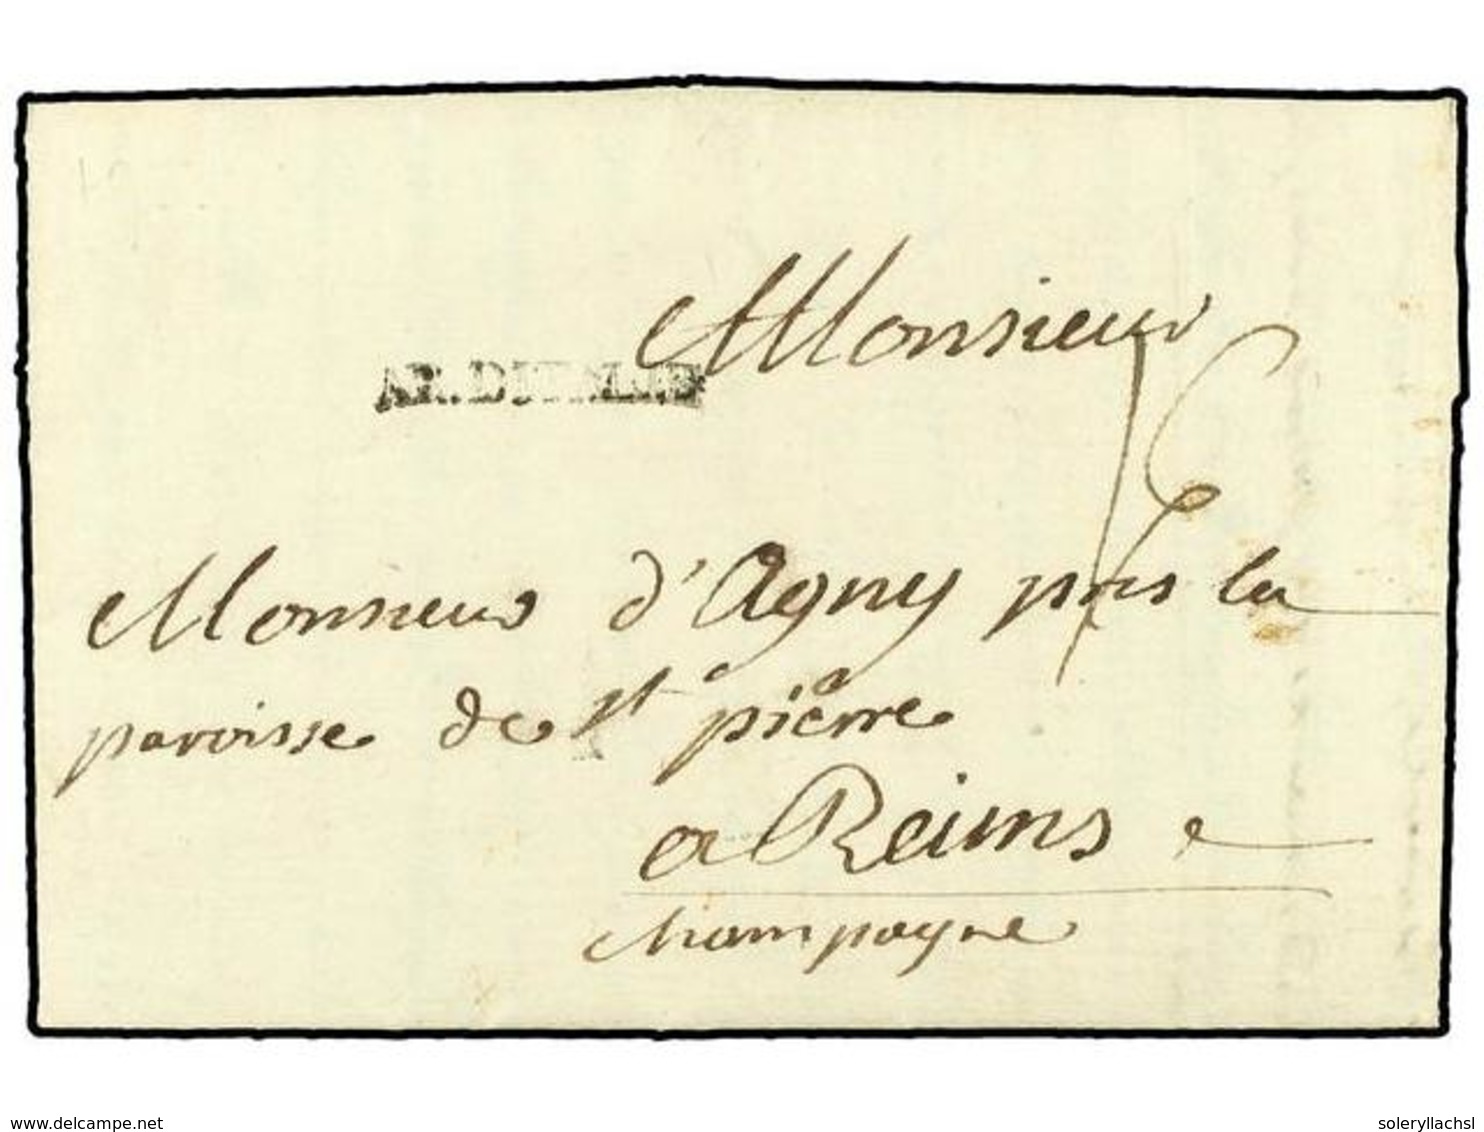 Monsieur
AR. D'ITALIE
16
Monsieur d'Agny pres la
paroisse de St pierre
a Reims
champagne
delcampe.net
soleryllachsl